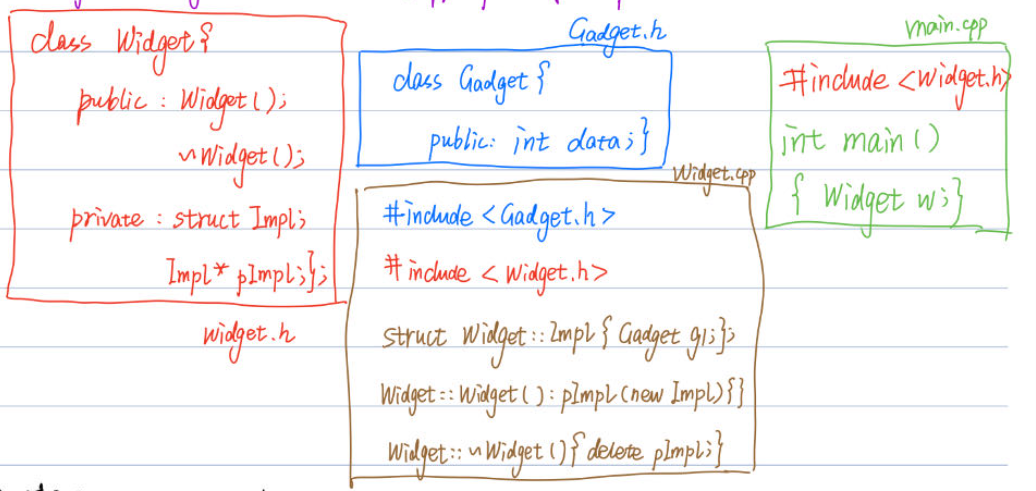 class Widget{
public : Widget();
~Widget();
private : struct Impl;
Impl* pImpl;};
Widget.h
Gadget.h
class Gadget {
public: int data;}
Widget.cpp
#include <Gadget.h>
#include <Widget.h>
struct Widget::Impl{ Gadget g1;};
Widget::Widget():pImpl(new Impl){}
Widget::~Widget(){delete pImpl;}
main.cpp
#include <Widget.h>
int main()
{ Widget w;}